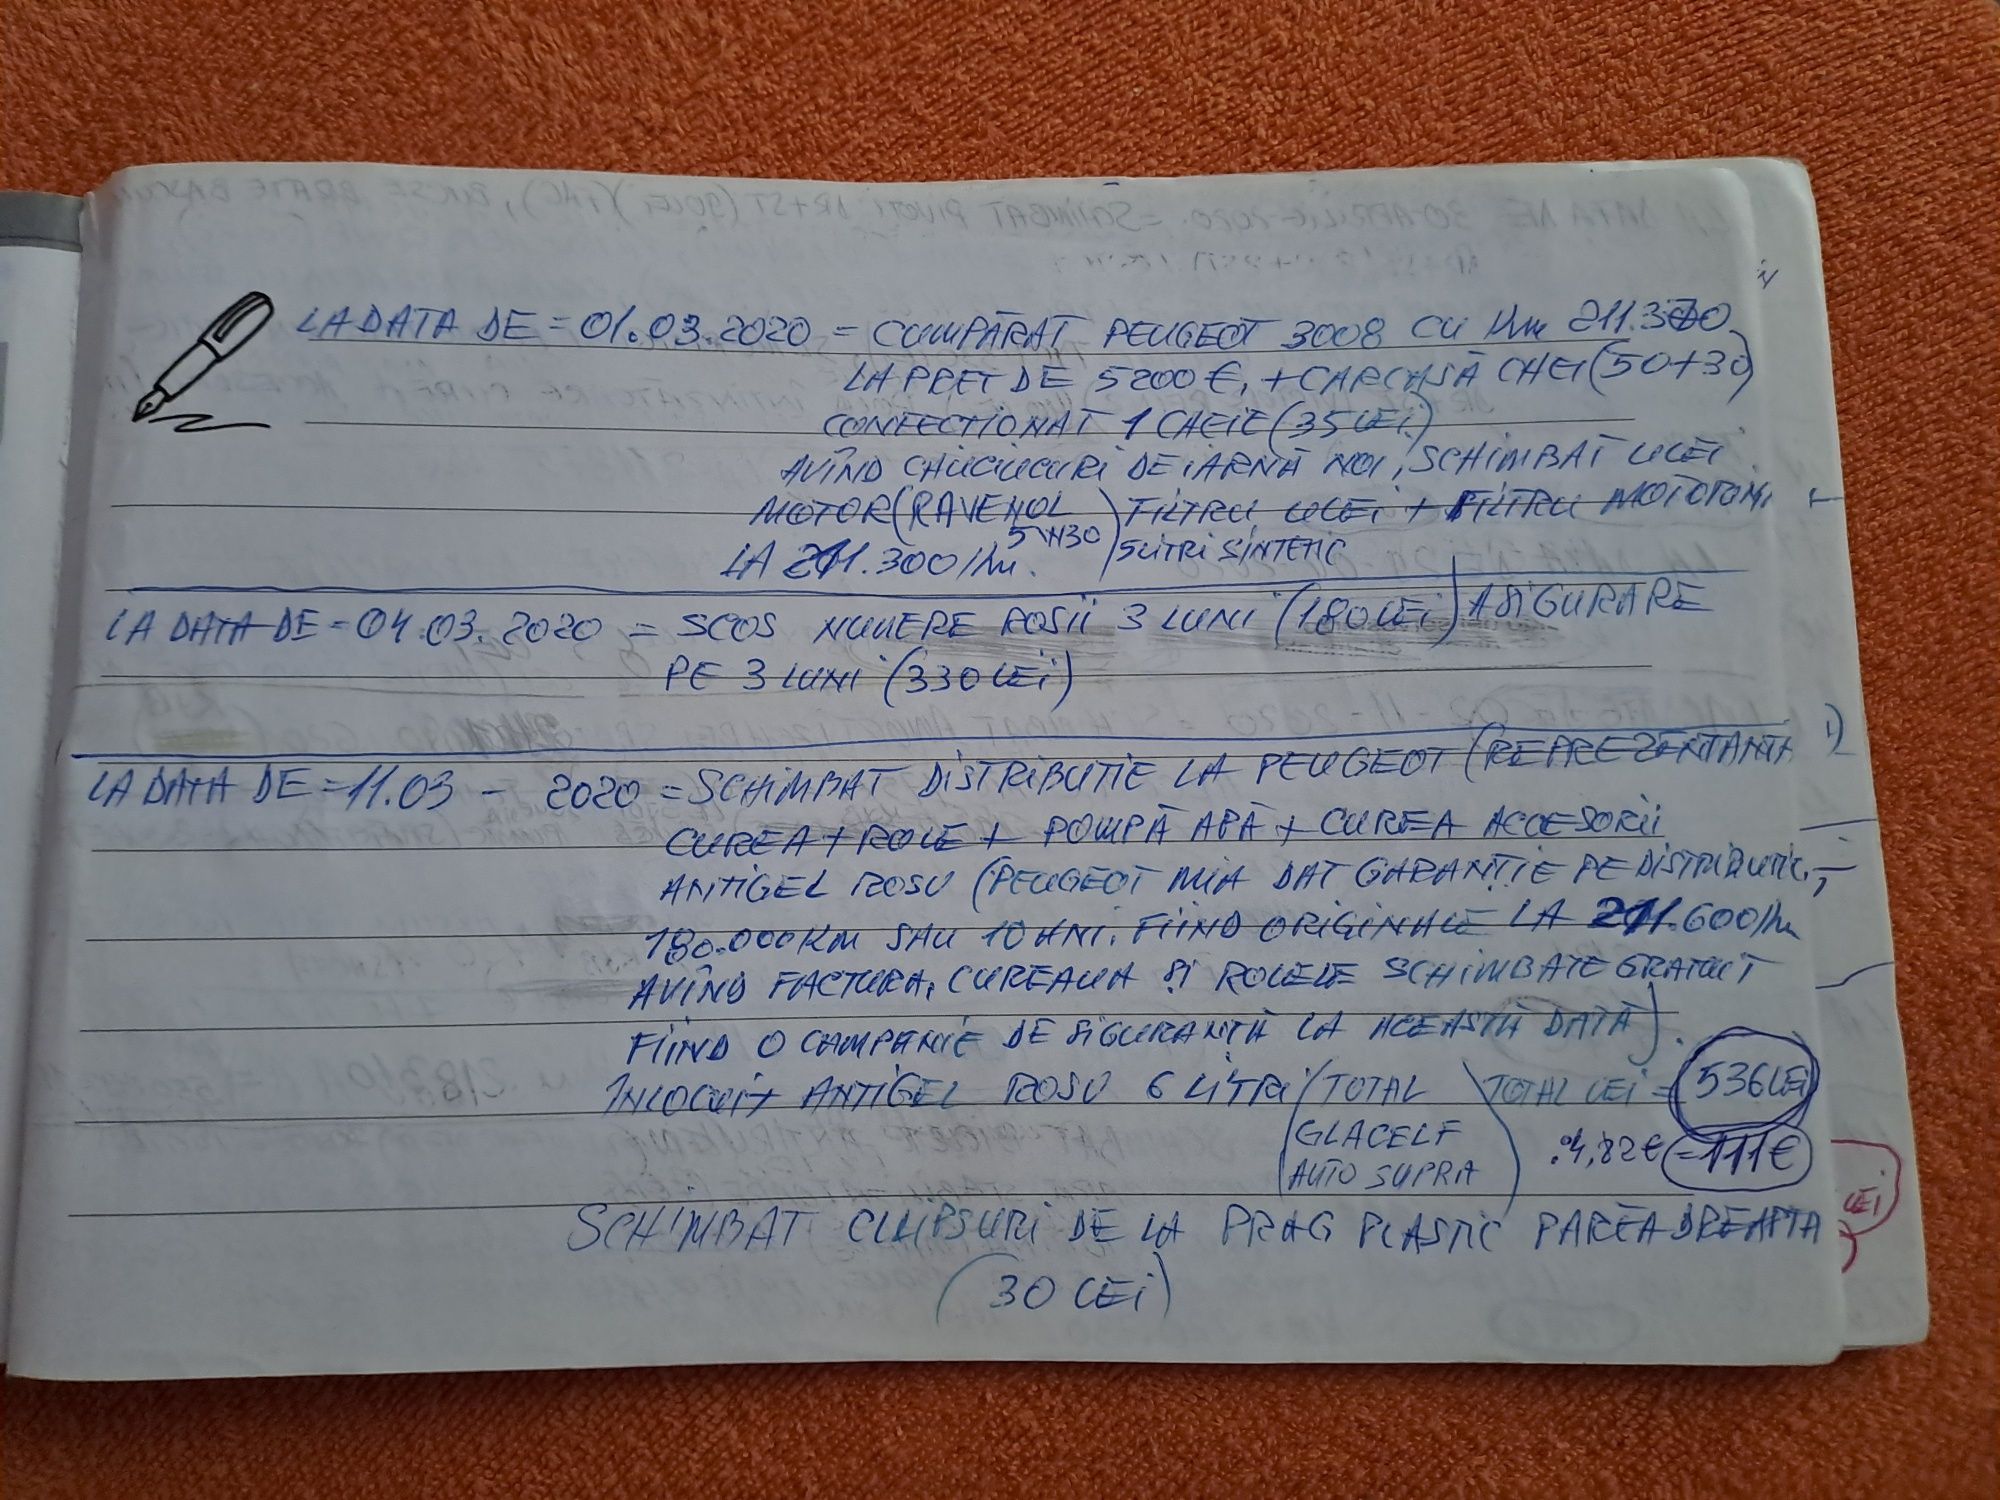 LA DATA DE = 01.03.2020 = CUMPĂRAT PEUGEOT 3008 CU km 211.300
LA PRET DE 5200 €, + CARCASĂ CHEI (50+30)
CONFECTIONAT 1 CHEIE (35 LEI)
AVÎND CAUCIUCURI DE IARNĂ NOI, SCHIMBAT ULEI
MOTOR (RAVENOL 5W30) FILTRU ULEI + FILTRU MOTORINĂ
LA 211.300/km. 5 LITRI SINTETIC
LA DATA DE = 04.03.2020 = SCOS NUMERE ROSII 3 LUNI (180 LEI) ASIGURARE
PE 3 LUNI (330 LEI)
LA DATA DE = 11.03 - 2020 = SCHIMBAT DISTRIBUTIE LA PEUGEOT (REPREZENTANTA
CUREA + ROLE + POMPĂ APĂ + CUREA ACCESORII
ANTIGEL ROSU (PEUGEOT MIA DAT GARANȚIE PE DISTRIBUTIE,
180.000KM SAU 10 ANI. FIIND ORIGINALE LA 211.600/km
AVÎND FACTURA, CUREAUA SI ROLELE SCHIMBATE GRATUIT
FIIND O CAMPANIE DE SIGURANTĂ LA ACEASTĂ DATĂ).
ÎNLOCUIT ANTIGEL ROSU 6 LITRI (TOTAL TOTAL LEI = 536 LEI
GLACELF :4,82€ = 111€
AUTO SUPRA)
SCHIMBAT CLIPSURI DE LA PRAG PLASTIC PARTEA DREAPTA
(30 LEI)